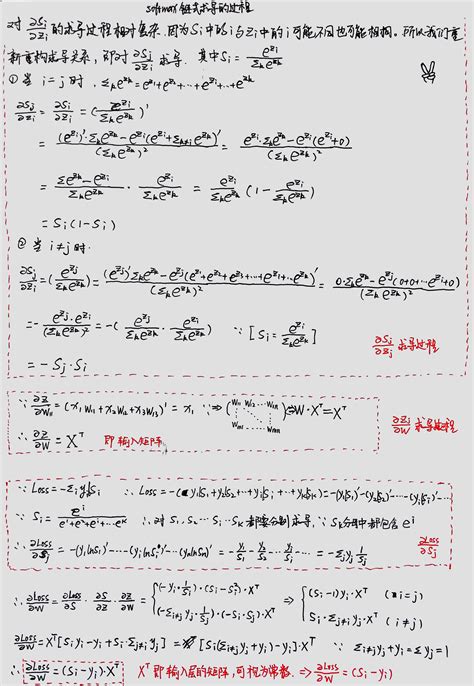 softmax 链式求导的过程
对 ∂Si/∂zi 的求导过程相对复杂.因为Si中的i与Zi中的i可能不同也可能相同,所以我们重
新重构求导关系,即对 ∂Sj/∂zi 求导. 其中Si = e^zi/Σk e^zk
① 当 i=j 时, Σk e^zk = e^z1+e^z2+…+e^zi+…+e^zk
∂Sj/∂zi = ∂Si/∂zi = (e^zi/Σk e^zk)'
= ((e^zi)'·Σk e^zk − e^zi(e^zi+Σk≠i e^zk)')/(Σk e^zk)² = (e^zi·Σk e^zk − e^zi(e^zi+0))/(Σk e^zk)²
= (Σ e^zk − e^zi)/Σk e^zk · e^zi/Σk e^zk = e^zi/Σk e^zk (1 − e^zi/Σk e^zk)
= Si(1−Si)
② 当 i≠j 时.
∂Sj/∂zi = (e^zj/Σk e^zk)' = ((e^zj)'Σk e^zk − e^zj(e^z1+e^z2+e^z3+…+e^zi+…e^zk)')/(Σk e^zk)² = (0·Σk e^zk − e^zj(0+0+…e^zi+0))/(Σk e^zk)²
= −(e^zj·e^zi)/(Σk e^zk)² = −(e^zj/Σk e^zk · e^zi/Σk e^zk) ∵ [Si = e^zi/Σk e^zk]
= −Sj·Si
∂Sj/∂zi 求导过程
∵ ∂z/∂W11 = (x1W11+x2W12+x3W13)' = x1 ∵⇒ (W11 W12…W1k ⋮ Wnk) ⇔ W·X^T = X^T
∴ ∂z/∂W = X^T 即输入矩阵
∂zi/∂W 求导过程
∵ Loss = −Σi yi lnSi ∴ Loss = −(y1lnS1+y2lnS2+…+yilnSi+…+yklnSk) = −(y1lnS1)'−(y2lnS2)'…−(yilnSi)'…
∵ Si = e^i/(e^1+e^2+e^i+…e^k) ∴ 对 S1.S2…Si…Sk 都要分别求导. ∵ Sk分母中都包含 e^i
∴ ∂Loss/∂Sj = −(y1lnS1)'…−(yilnSi)'…−(yklnSk)' = −y1/S1−y2/S2…−yi/Si… = −Σj yj 1/Sj
∂Loss/∂Sj
∴ ∂Loss/∂W = ∂Loss/∂S · ∂S/∂z · ∂z/∂W = { (−yi·1/Si)·(Si−Si²)·X^T ⇒ { (Si−1)yi·X^T (i=j)
(−Σi≠j yj·1/Sj)·(−Sj·Si)·X^T Si·Σi≠j yj·X^T (i≠j)
∂Loss/∂W = X^T[Si yi−yi+Si·Σj≠i yj] = [Si(Σi≠j yj+yi)−yi]·X^T ∵ Σi≠j yj+yi = Σyj = 1
∴ ∂Loss/∂W = (Si−yi)·X^T X^T 即输入层的矩阵,可视为常数. ⇒ ∂Loss/∂W = (Si−yi)